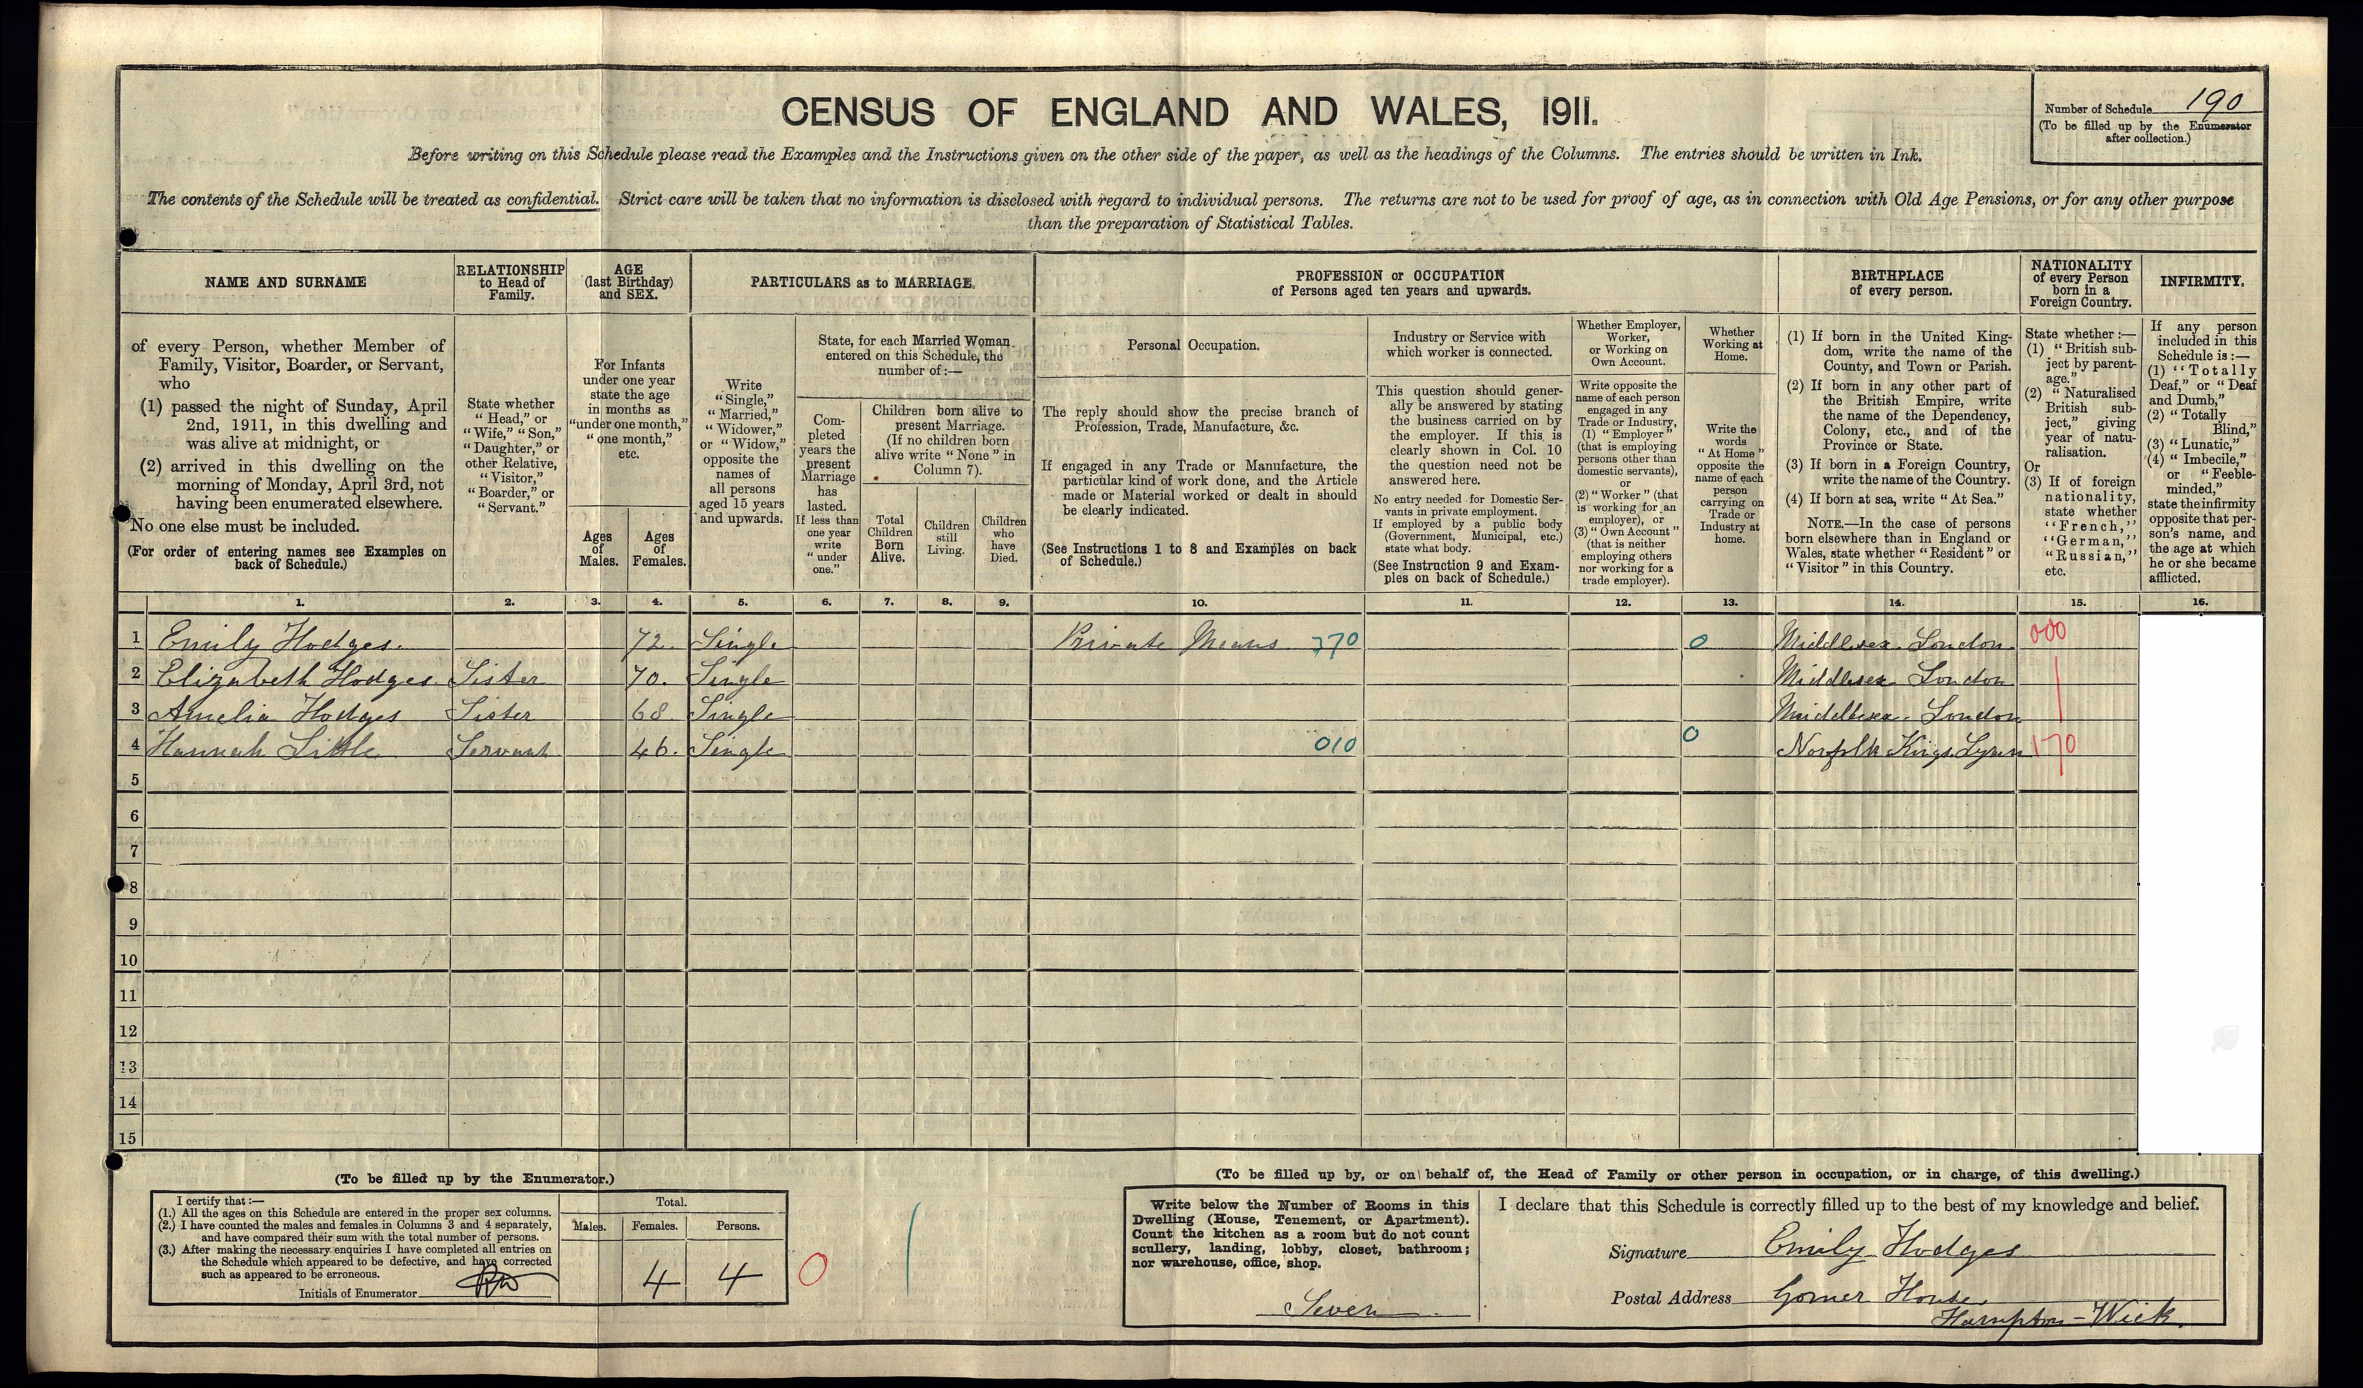 CENSUS OF ENGLAND AND WALES, 1911.
Number of Schedule 190
(To be filled up by the Enumerator
after collection.)
Before writing on this Schedule please read the Examples and the Instructions given on the other side of the paper, as well as the headings of the Columns. The entries should be written in Ink.
The contents of the Schedule will be treated as confidential. Strict care will be taken that no information is disclosed with regard to individual persons. The returns are not to be used for proof of age, as in connection with Old Age Pensions, or for any other purpose
than the preparation of Statistical Tables.
NAME AND SURNAME
of every Person, whether Member of
Family, Visitor, Boarder, or Servant,
who
(1) passed the night of Sunday, April
2nd, 1911, in this dwelling and
was alive at midnight, or
(2) arrived in this dwelling on the
morning of Monday, April 3rd, not
having been enumerated elsewhere.
No one else must be included.
(For order of entering names see Examples on
back of Schedule.)
RELATIONSHIP
to Head of
Family.
State whether
"Head," or
"Wife," "Son,"
"Daughter," or
other Relative,
"Visitor,"
"Boarder," or
"Servant."
AGE
(last Birthday)
and SEX.
For Infants
under one year
state the age
in months as
"under one month,"
"one month,"
etc.
Ages
of
Males.
Ages
of
Females.
PARTICULARS as to MARRIAGE.
Write
"Single,"
"Married,"
"Widower,"
or "Widow,"
opposite the
names of
all persons
aged 15 years
and upwards.
State, for each Married Woman
entered on this Schedule, the
number of:—
Com-
pleted
years the
present
Marriage
has
lasted.
If less than
one year
write
"under
one."
Children born alive to
present Marriage.
(If no children born
alive write "None" in
Column 7).
Total
Children
Born
Alive.
Children
still
Living.
Children
who
have
Died.
PROFESSION or OCCUPATION
of Persons aged ten years and upwards.
Personal Occupation.
The reply should show the precise branch of
Profession, Trade, Manufacture, &c.
If engaged in any Trade or Manufacture, the
particular kind of work done, and the Article
made or Material worked or dealt in should
be clearly indicated.
(See Instructions 1 to 8 and Examples on back
of Schedule.)
Industry or Service with
which worker is connected.
This question should gener-
ally be answered by stating
the business carried on by
the employer. If this is
clearly shown in Col. 10
the question need not be
answered here.
No entry needed for Domestic Ser-
vants in private employment.
If employed by a public body
(Government, Municipal, etc.)
state what body.
(See Instruction 9 and Exam-
ples on back of Schedule.)
Whether Employer,
Worker,
or Working on
Own Account.
Write opposite the
name of each person
engaged in any
Trade or Industry,
(1) "Employer"
(that is employing
persons other than
domestic servants),
or
(2) "Worker" (that
is working for an
employer), or
(3) "Own Account"
(that is neither
employing others
nor working for a
trade employer).
Whether
Working at
Home.
Write the
words
"At Home"
opposite the
name of each
person
carrying on
Trade or
Industry at
home.
BIRTHPLACE
of every person.
(1) If born in the United King-
dom, write the name of the
County, and Town or Parish.
(2) If born in any other part of
the British Empire, write
the name of the Dependency,
Colony, etc., and of the
Province or State.
(3) If born in a Foreign Country,
write the name of the Country.
(4) If born at sea, write "At Sea."
NOTE.—In the case of persons
born elsewhere than in England or
Wales, state whether "Resident" or
"Visitor" in this Country.
NATIONALITY
of every Person
born in a
Foreign Country.
State whether :—
(1) "British sub-
ject by parent-
age."
(2) "Naturalised
British sub-
ject," giving
year of natu-
ralisation.
Or
(3) If of foreign
nationality,
state whether
"French,"
"German,"
"Russian,"
etc.
INFIRMITY.
If any person
included in this
Schedule is:—
(1) "Totally
Deaf," or "Deaf
and Dumb,"
(2) "Totally
Blind,"
(3) "Lunatic,"
(4) "Imbecile,"
or "Feeble-
minded,"
state the infirmity
opposite that per-
son's name, and
the age at which
he or she became
afflicted.
1. 2. 3. 4. 5. 6. 7. 8. 9. 10. 11. 12. 13. 14. 15. 16.
1 Emily Hodges. 72. Single Private Means 370 0 Middlesex London 000
2 Elizabeth Hodges Sister 70. Single Middlesex London
3 Amelia Hodges Sister 68 Single Middlesex London
4 Hannah Little Servant 46. Single 010 0 Norfolk Kings Lynn 170
5
6
7
8
9
10
11
12
13
14
15
(To be filled up by the Enumerator.)
I certify that:—
(1.) All the ages on this Schedule are entered in the proper sex columns.
(2.) I have counted the males and females in Columns 3 and 4 separately,
and have compared their sum with the total number of persons.
(3.) After making the necessary enquiries I have completed all entries on
the Schedule which appeared to be defective, and have corrected
such as appeared to be erroneous.
Initials of Enumerator
Total.
Males. Females. Persons.
4 4 0
(To be filled up by, or on behalf of, the Head of Family or other person in occupation, or in charge, of this dwelling.)
Write below the Number of Rooms in this
Dwelling (House, Tenement, or Apartment).
Count the kitchen as a room but do not count
scullery, landing, lobby, closet, bathroom;
nor warehouse, office, shop.
Seven
I declare that this Schedule is correctly filled up to the best of my knowledge and belief.
Signature Emily Hodges
Postal Address Gomer House
Hampton-Wick.